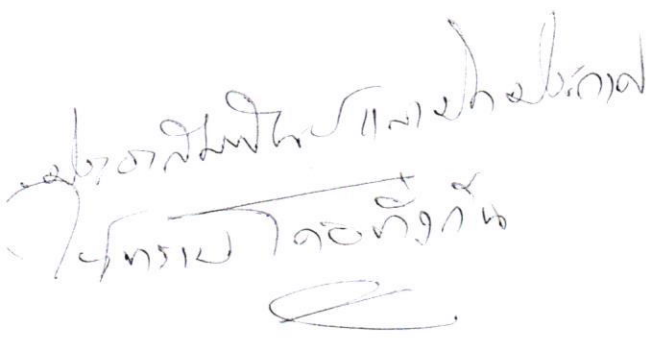 ประชาสัมพันธ์และปิดประกาศ
ให้ทราบโดยทั่วกัน